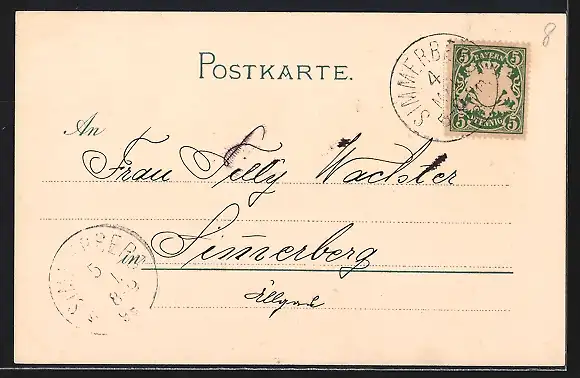 8
POSTKARTE.
SIMMERBE
4
5 BAYERN 5
5 PFENNIG 5
An
Frau Tilly Wachter
in Simerberg
Allgäu
5
8